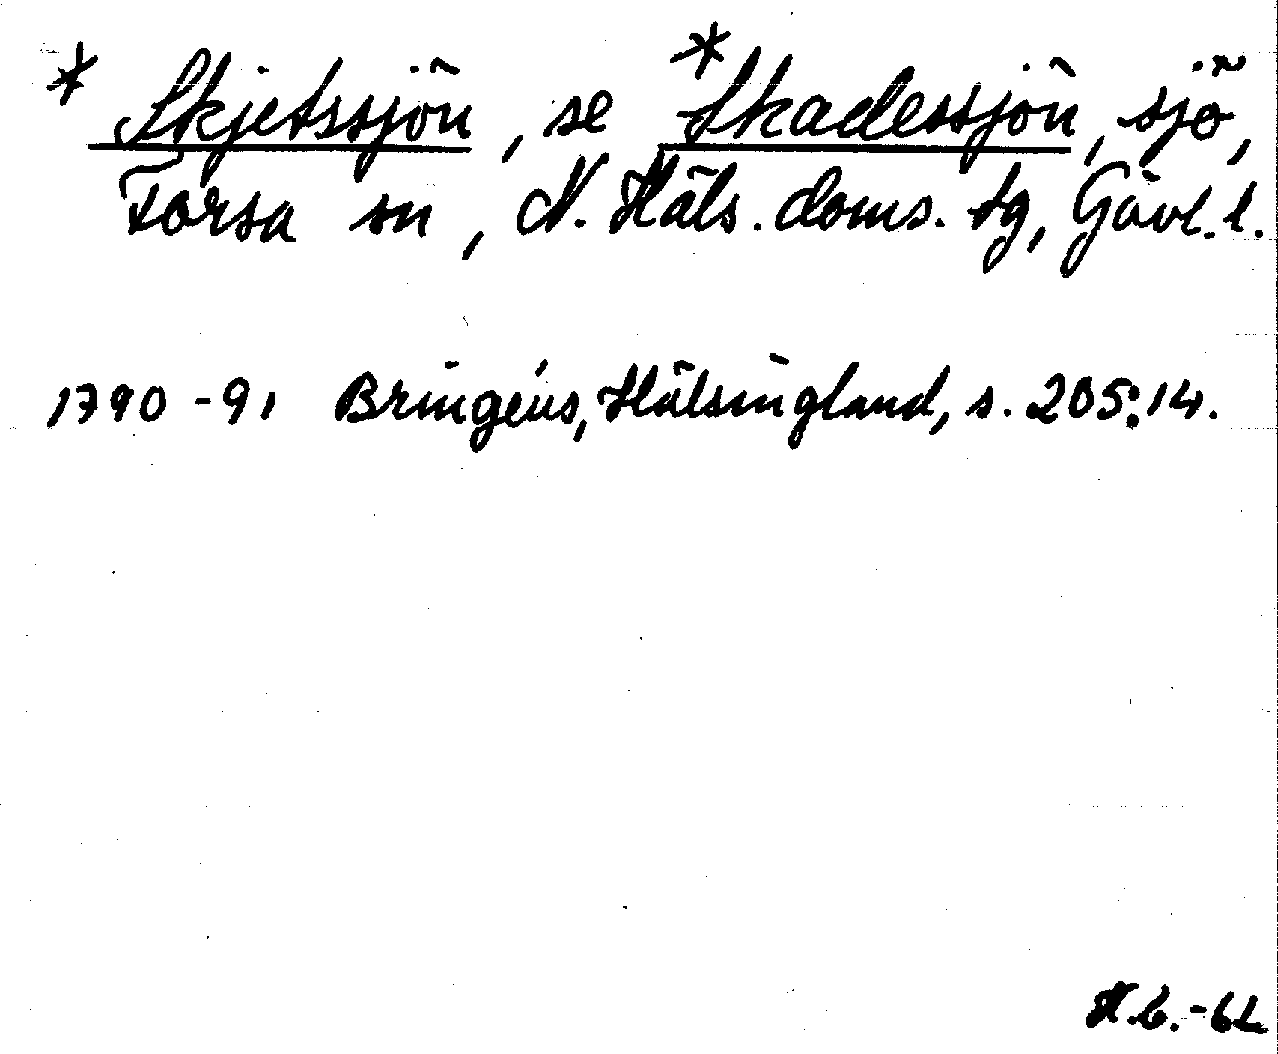 * Skjetssjön, se *Skadessjön, sjö,
Forsa sn, N. Häls. doms. tg, Gävl. l.
1790-91 Bringéus, Hälsingland, s. 205:14.